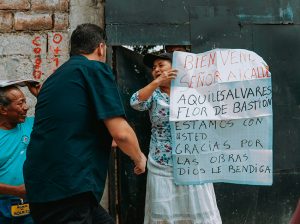 BIENVENI
SEÑOR ALCALDE
AQUILES ALVARES
FLOR DE BASTION
ESTAMOS CON
USTED
GRACIAS POR
LAS OBRAS
DIOS LE BENDIGA